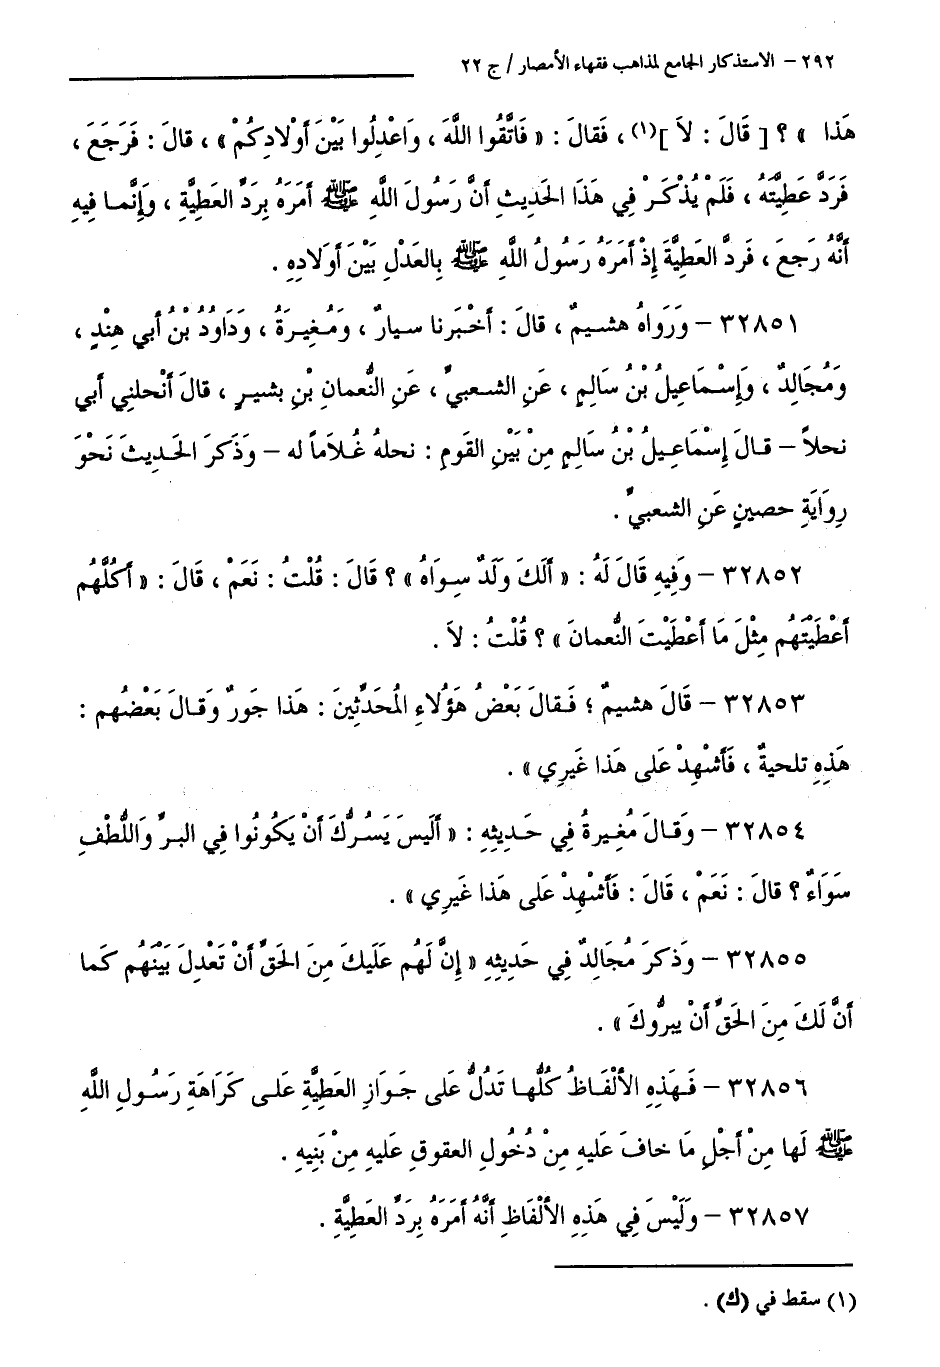 ٢٩٢ – الاستذكار الجامع لمذاهب فقهاء الأمصار / ج ٢٢
هَذا » ؟ [ قَالَ : لاَ ](١) ، فَقالَ : « فَاتَّقُوا اللَّهَ ، وَاعْدِلُوا بَيْنَ أَوْلادِكُمْ » ، قالَ : فَرَجَعَ ،
فَرَدَّ عَطِيَّتَهُ ، فَلَمْ يُذْكَرْ فِي هَذَا الحَدِيثِ أَنَّ رَسُولَ اللَّهِ ﷺ أَمَرَهُ بِرَدِّ العَطِيَّةِ ، وَإِنَّما فِيهِ
أَنَّهُ رَجَعَ ، فَردَّ العَطِيَّةَ إِذْ أَمَرَهُ رَسُولُ اللَّهِ ﷺ بِالعَدْلِ بَيْنَ أَوْلادِهِ .
٣٢٨٥١ – وَرَوَاهُ هشيمٌ ، قالَ : أَخْبَرنا سيارٌ ، وَمُغِيرَةُ ، وَدَاوُدُ بْنُ أَبي هِنْدٍ ،
وَمُجَالِدٌ ، وَإِسْمَاعِيلُ بْنُ سَالِمٍ ، عَنِ الشعبيِّ ، عَنِ النُّعمانِ بْنِ بشيرٍ ، قالَ أَنْحلنِي أَبي
نحلاً – قالَ إِسْمَاعِيلُ بْنُ سَالِمٍ مِنْ بَيْنِ القَومِ : نحلهُ غُلاَماً له – وَذَكَرَ الحَدِيثَ نَحْوَ
رِوَايَةِ حصينٍ عَنِ الشعبيِّ .
٣٢٨٥٢ – وَفِيهِ قَالَ لَهُ : « أَلَكَ وَلَدٌ سِوَاهُ » ؟ قَالَ : قُلْتُ : نَعَمْ ، قَالَ : « أَكُلَّهُم
أَعْطَيْتَهُم مِثْلَ مَا أَعْطَيْتَ النُّعمانَ » ؟ قُلْتُ : لاَ .
٣٢٨٥٣ – قَالَ هشيمٌ ؛ فَقالَ بَعْضُ هَؤُلاءِ المُحَدِّثِينَ : هَذا جَورٌ وَقالَ بَعْضُهم :
هَذِهِ تلحيةٌ ، فَأَشْهِدْ عَلى هَذا غَيرِي » .
٣٢٨٥٤ – وَقالَ مُغِيرةُ فِي حَدِيثِهِ : « أَلَيسَ يَسُرُّكَ أَنْ يَكُونُوا فِي البرِّ وَاللُّطْفِ
سَوَاءٌ ؟ قالَ : نَعَمْ ، قَالَ : فَأَشْهِدْ عَلى هَذا غَيرِي » .
٣٢٨٥٥ – وَذكرَ مُجَالِدٌ فِي حَدِيثِهِ « إِنَّ لَهُم عَلَيكَ مِنَ الحَقِّ أَنْ تَعْدِلَ بَيْنَهُم كَما
أَنَّ لَكَ مِنَ الحَقِّ أَنْ يبرُّوكَ » .
٣٢٨٥٦ – فَهَذِهِ الأَلْفَاظُ كُلُّها تَدُلُّ عَلى جَوازِ العَطِيَّةِ عَلى كَرَاهَةِ رَسُولِ اللَّهِ
ﷺ لَها مِنْ أَجْلِ مَا خافَ عَليهِ مِنْ دُخُولِ العقوقِ عَليهِ مِنْ بَنِيهِ .
٣٢٨٥٧ – وَلَيْسَ فِي هَذِهِ الأَلْفَاظِ أَنَّهُ أَمَرَهُ بِرَدِّ العَطِيَّةِ .
(١) سقط في (ك) .